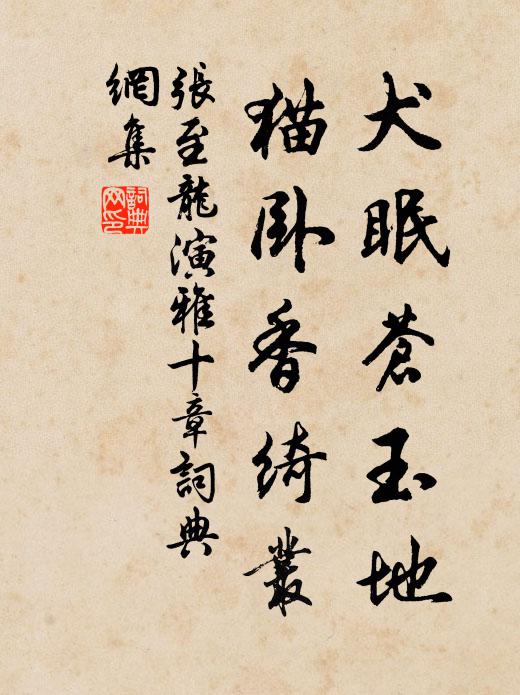 犬眠蒼玉地
猫卧香綺叢
張至龍演雅十章詞典
網集
詞典网印